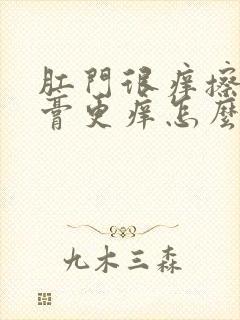 肛門很痒擦
膏更痒怎麼
九木三森